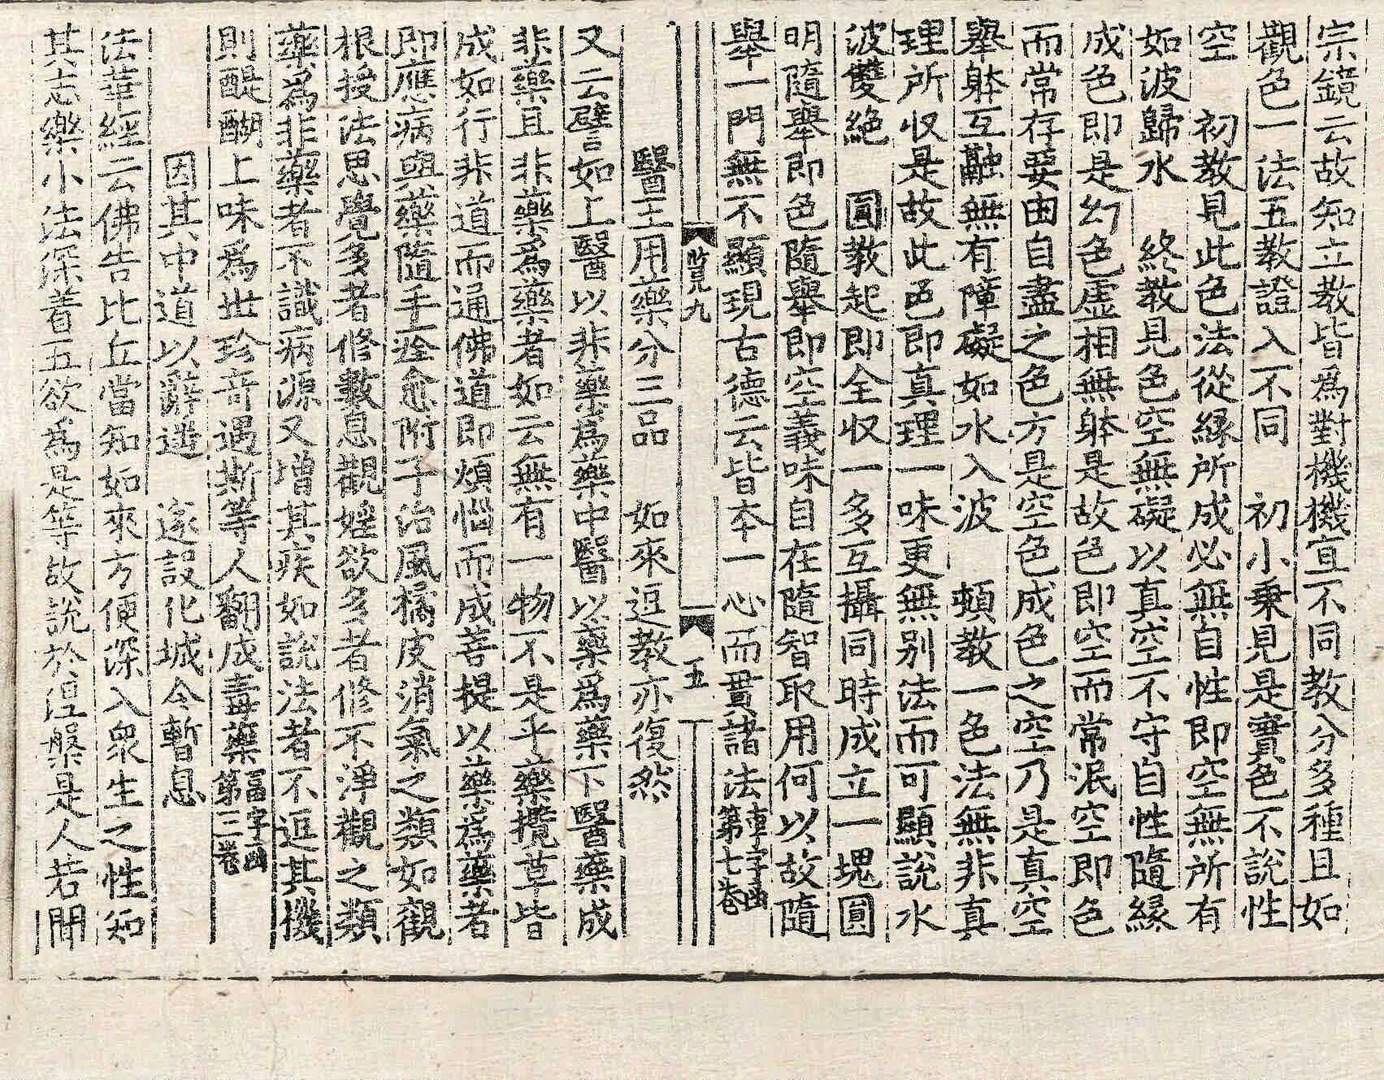 宗鏡云故知立教皆爲對機機宜不同教分多種且如
觀色一法五教證入不同　初小乗見是實色不說性
空　初教見此色法從緣所成必無自性即空無所有
如波歸水　終教見色空無礙以真空不守自性隨緣
成色即是幻色虛相無躰是故色即空而常泯空即色
而常存要由自盡之色方是空色成色之空乃是真空
舉躰互融無有障礙如水入波　頓教一色法無非真
理所収是故此色即真理一味更無别法而可顯說水
波雙絶　圓教起即全収一多互攝同時成立一塊圓
明隨舉即色隨舉即空義味自在隨智取用何以故隨
舉一門無不顯現古德云皆本一心而貫諸法 第七卷
覧九　五
醫王用藥分三品　如來逗教亦復然
又云譬如上醫以非藥爲藥中醫以藥爲藥下醫藥成
非藥且非藥爲藥者如云無有一物不是乎藥攬草皆
成如行非道而通佛道即煩惱而成菩提以藥爲藥者
即應病與藥隨手痊愈附子治風橘皮消氣之類如觀
根授法思覺多者修數息觀婬欲多者修不淨觀之類
藥爲非藥者不識病源又增其疾如說法者不逗其機
則醍醐上味爲世珍奇遇斯等人翻成毒藥 富字函第三卷
因其中道以辭遣　遂設化城令暫息
法華經云佛告比丘當知如來方便深入衆生之性知
其志樂小法深着五欲爲是等故說於涅槃是人若聞